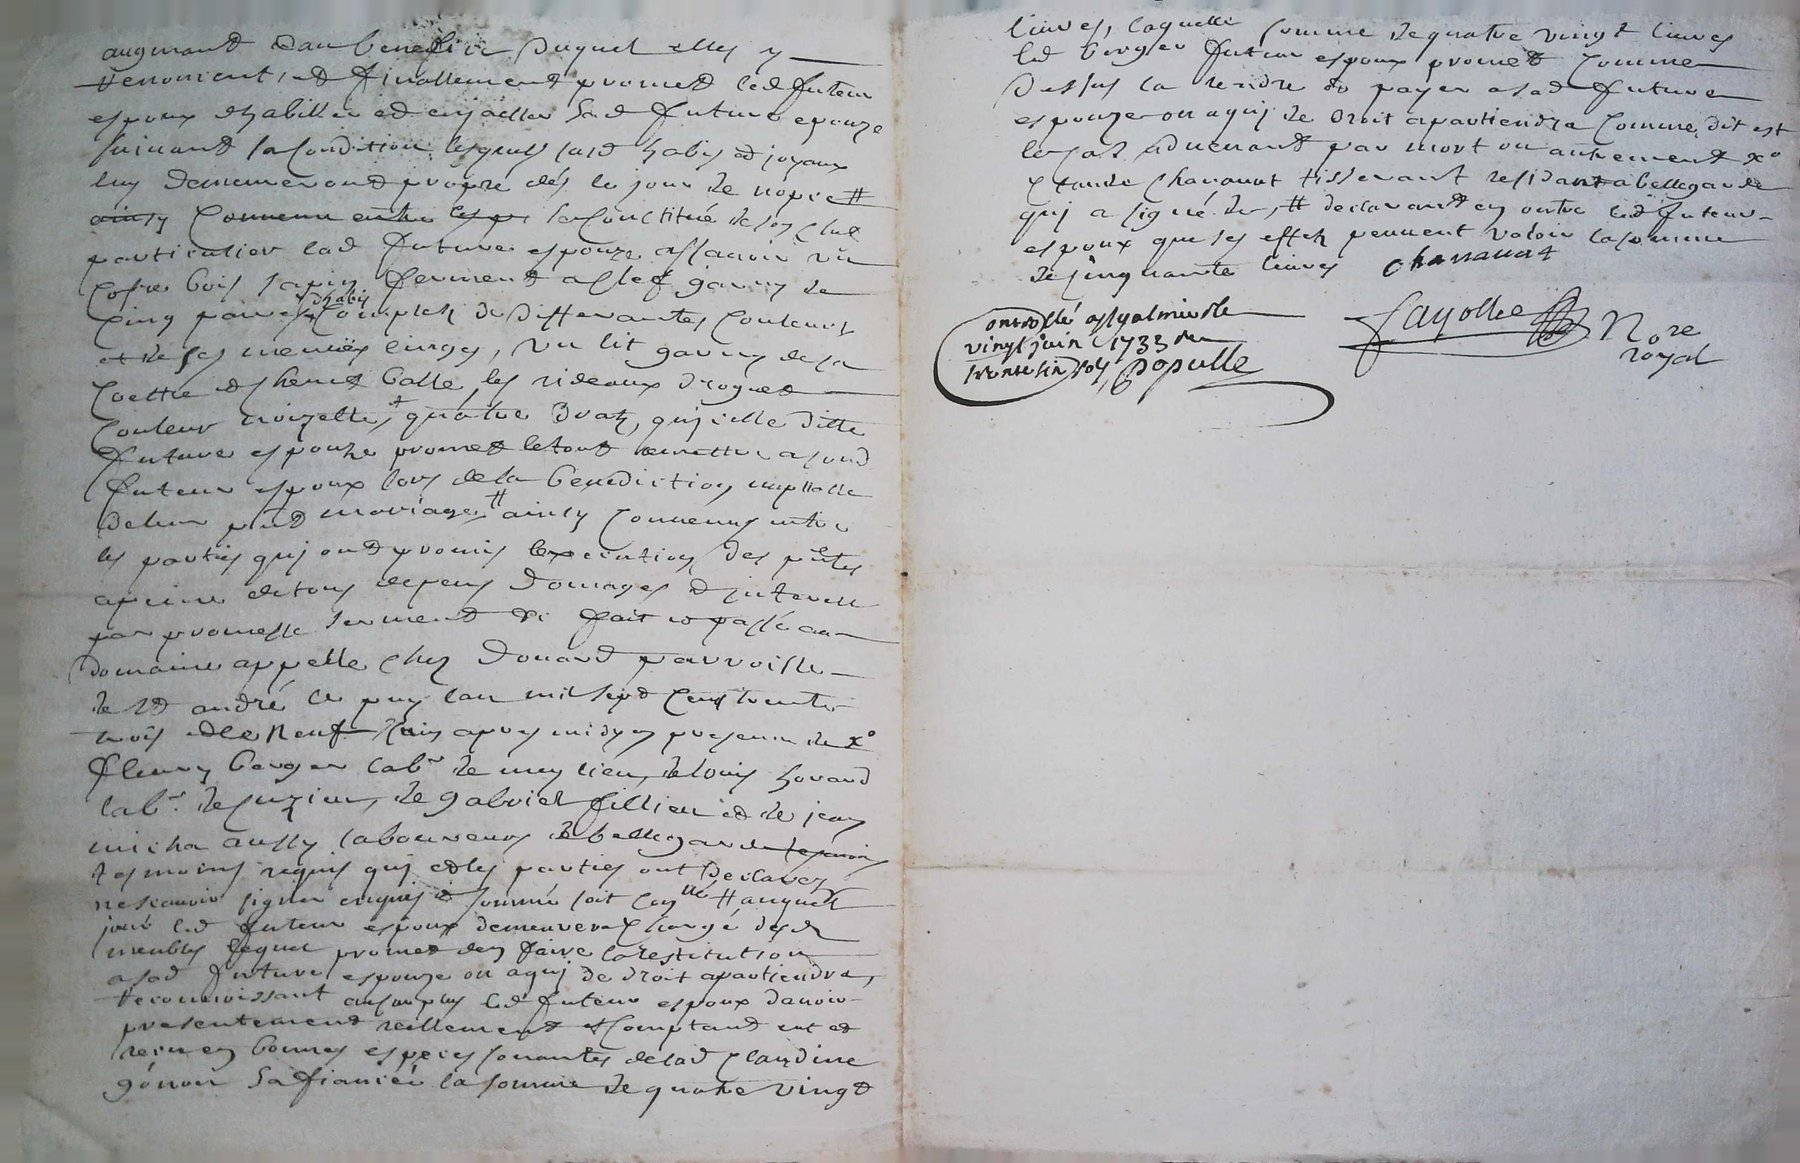 augmand d'au benefice duquel elles y
renoncent, et finallement promet led futeur
espoux dhabiller et enjoaller sad future epouze
suivant sa condition lesquels susd habis et joyaux
luy demeureront propre dés le jour de nopce #
ainsy convenu entre se constitue de son chef
particulier lad future espouze assavoir un
cofre bois sapin ferment a clef garny de
cinq paires dhabis complets de differantes couleurs
et de ses menües linges, un lit garny de sa
coettre et balle, les rideaux droguet
couleur noizette, quatre draz, qu'icelle ditte
future espouze promet le tout remettre a sond
futeur espoux lors de la benediction nuptialle
de leur pnt mariage # ainsy convenus entre
les parties qui ont promis lexecution des pntes
a peine de tous depens domages et interest
par promesse serment &c fait et passé au
domaine appellé chez Douard parroisse
de St andré le puy lan mil sept cent trente
trois et le neuf juin apres midy en presence de Xo
fleury berger labr de mey lieu, de louis
labr de suzieu, de gabriel fillieu et de jean
micha aussy laboureurs de bellegarde
tesmoins requis qui et les parties ont declarez
ne scavoir signer enquis et sommé soit conllé # auquel
jour led futeur espoux demeurera chargé desd
meubles lequel promet den faire la restitution
a sad future espouze ou a qui de droit apartiendra,
reconnoissant au surplus led futeur espoux davoir
presentement reellement et comptand eut et
receu en bonnes especes sonantes de lad Claudine
génon sa fiancée la somme de quatre vingt
livres, laquelle somme de quatre vingt livres
led berger futeur espoux promet comme
dessus la rendre et payer a sad future
espouze ou a qui de droit apartiendra comme dit est
le cas advenant par mort ou autrement Xo
Claude Chavanat tisserant residant a bellegarde
qui a signé &c, # declarant en outre led futeur
espoux que ses effets peuvent valoir la somme
de sinquante livres Chavanat
controllé a St galmier le
vingt juin 1733 reçu
trente six sols Populle
Fayolle Nore
royal